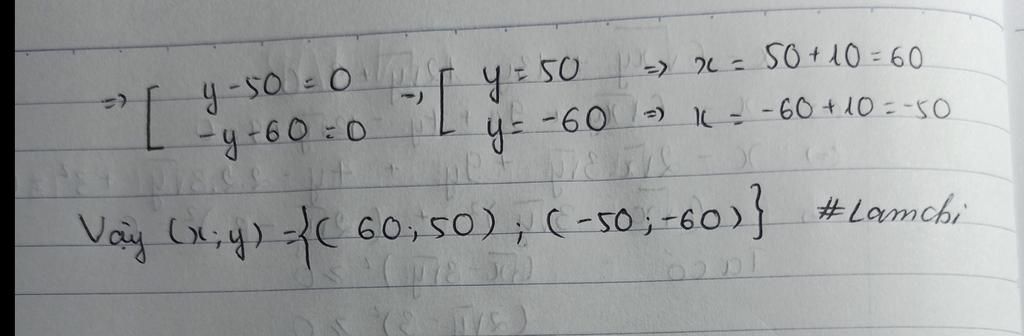 => [ y-50=0 => [ y=50 => x = 50+10=60
-y-60=0 y= -60 => x = -60+10=-50
Vậy (x;y) ={( 60;50) ; (-50;-60)} #Lamchi